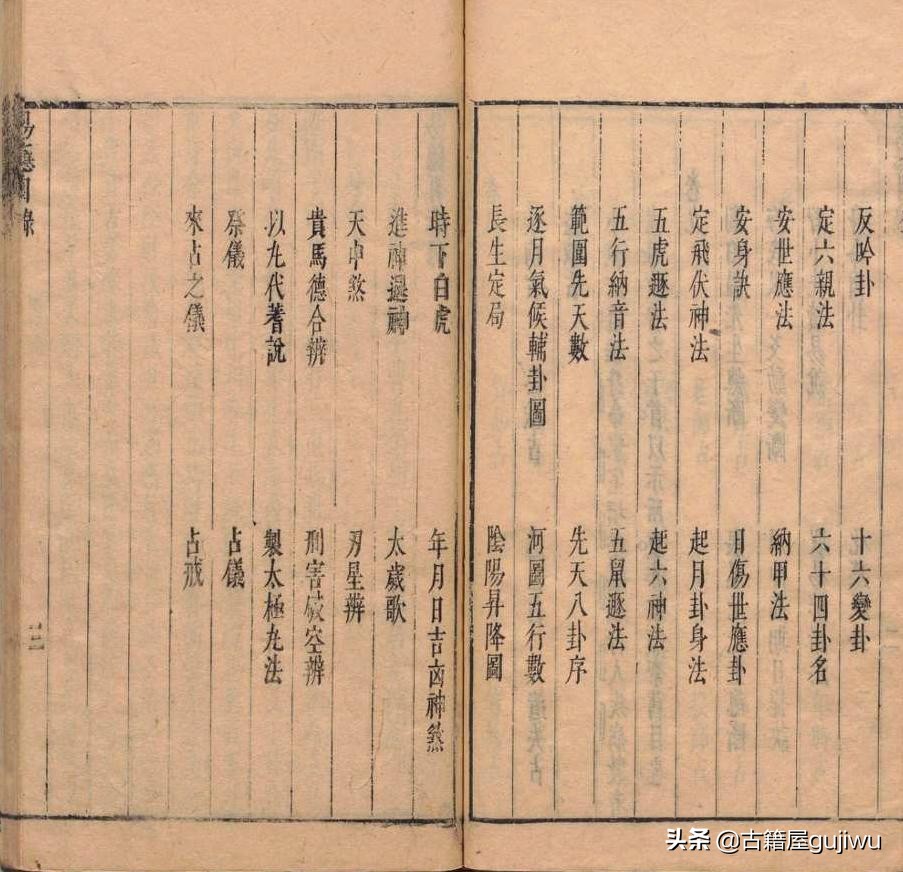 反吟卦 十六變卦
定六親法 六十四卦名
安世應法 納甲法
安身訣 日傷世應卦
定飛伏神法 起月卦身法
五虎遯法 起六神法
五行納音法 五鼠遯法
範圍先天數 先天八卦序
逐月氣候輔卦圖 河圖五行數
長生定局 陰陽昇降圖
時下白虎 年月日吉凶神煞
進神退神 太歲歌
天中煞 刃星辨
貴馬德合辨 刑害空辨
以丸代蓍說 製太極丸法
儀 占儀
來占之儀 占戒
易隱目錄
頭条 @古籍屋gujiwu